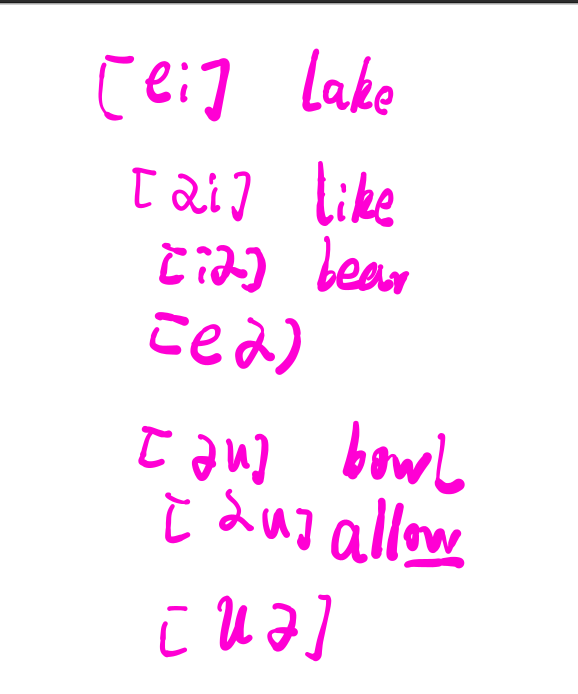 [ei] lake
[ai] like
[iə] bear
[eə]
[əu] bowl
[au] allow
[uə]